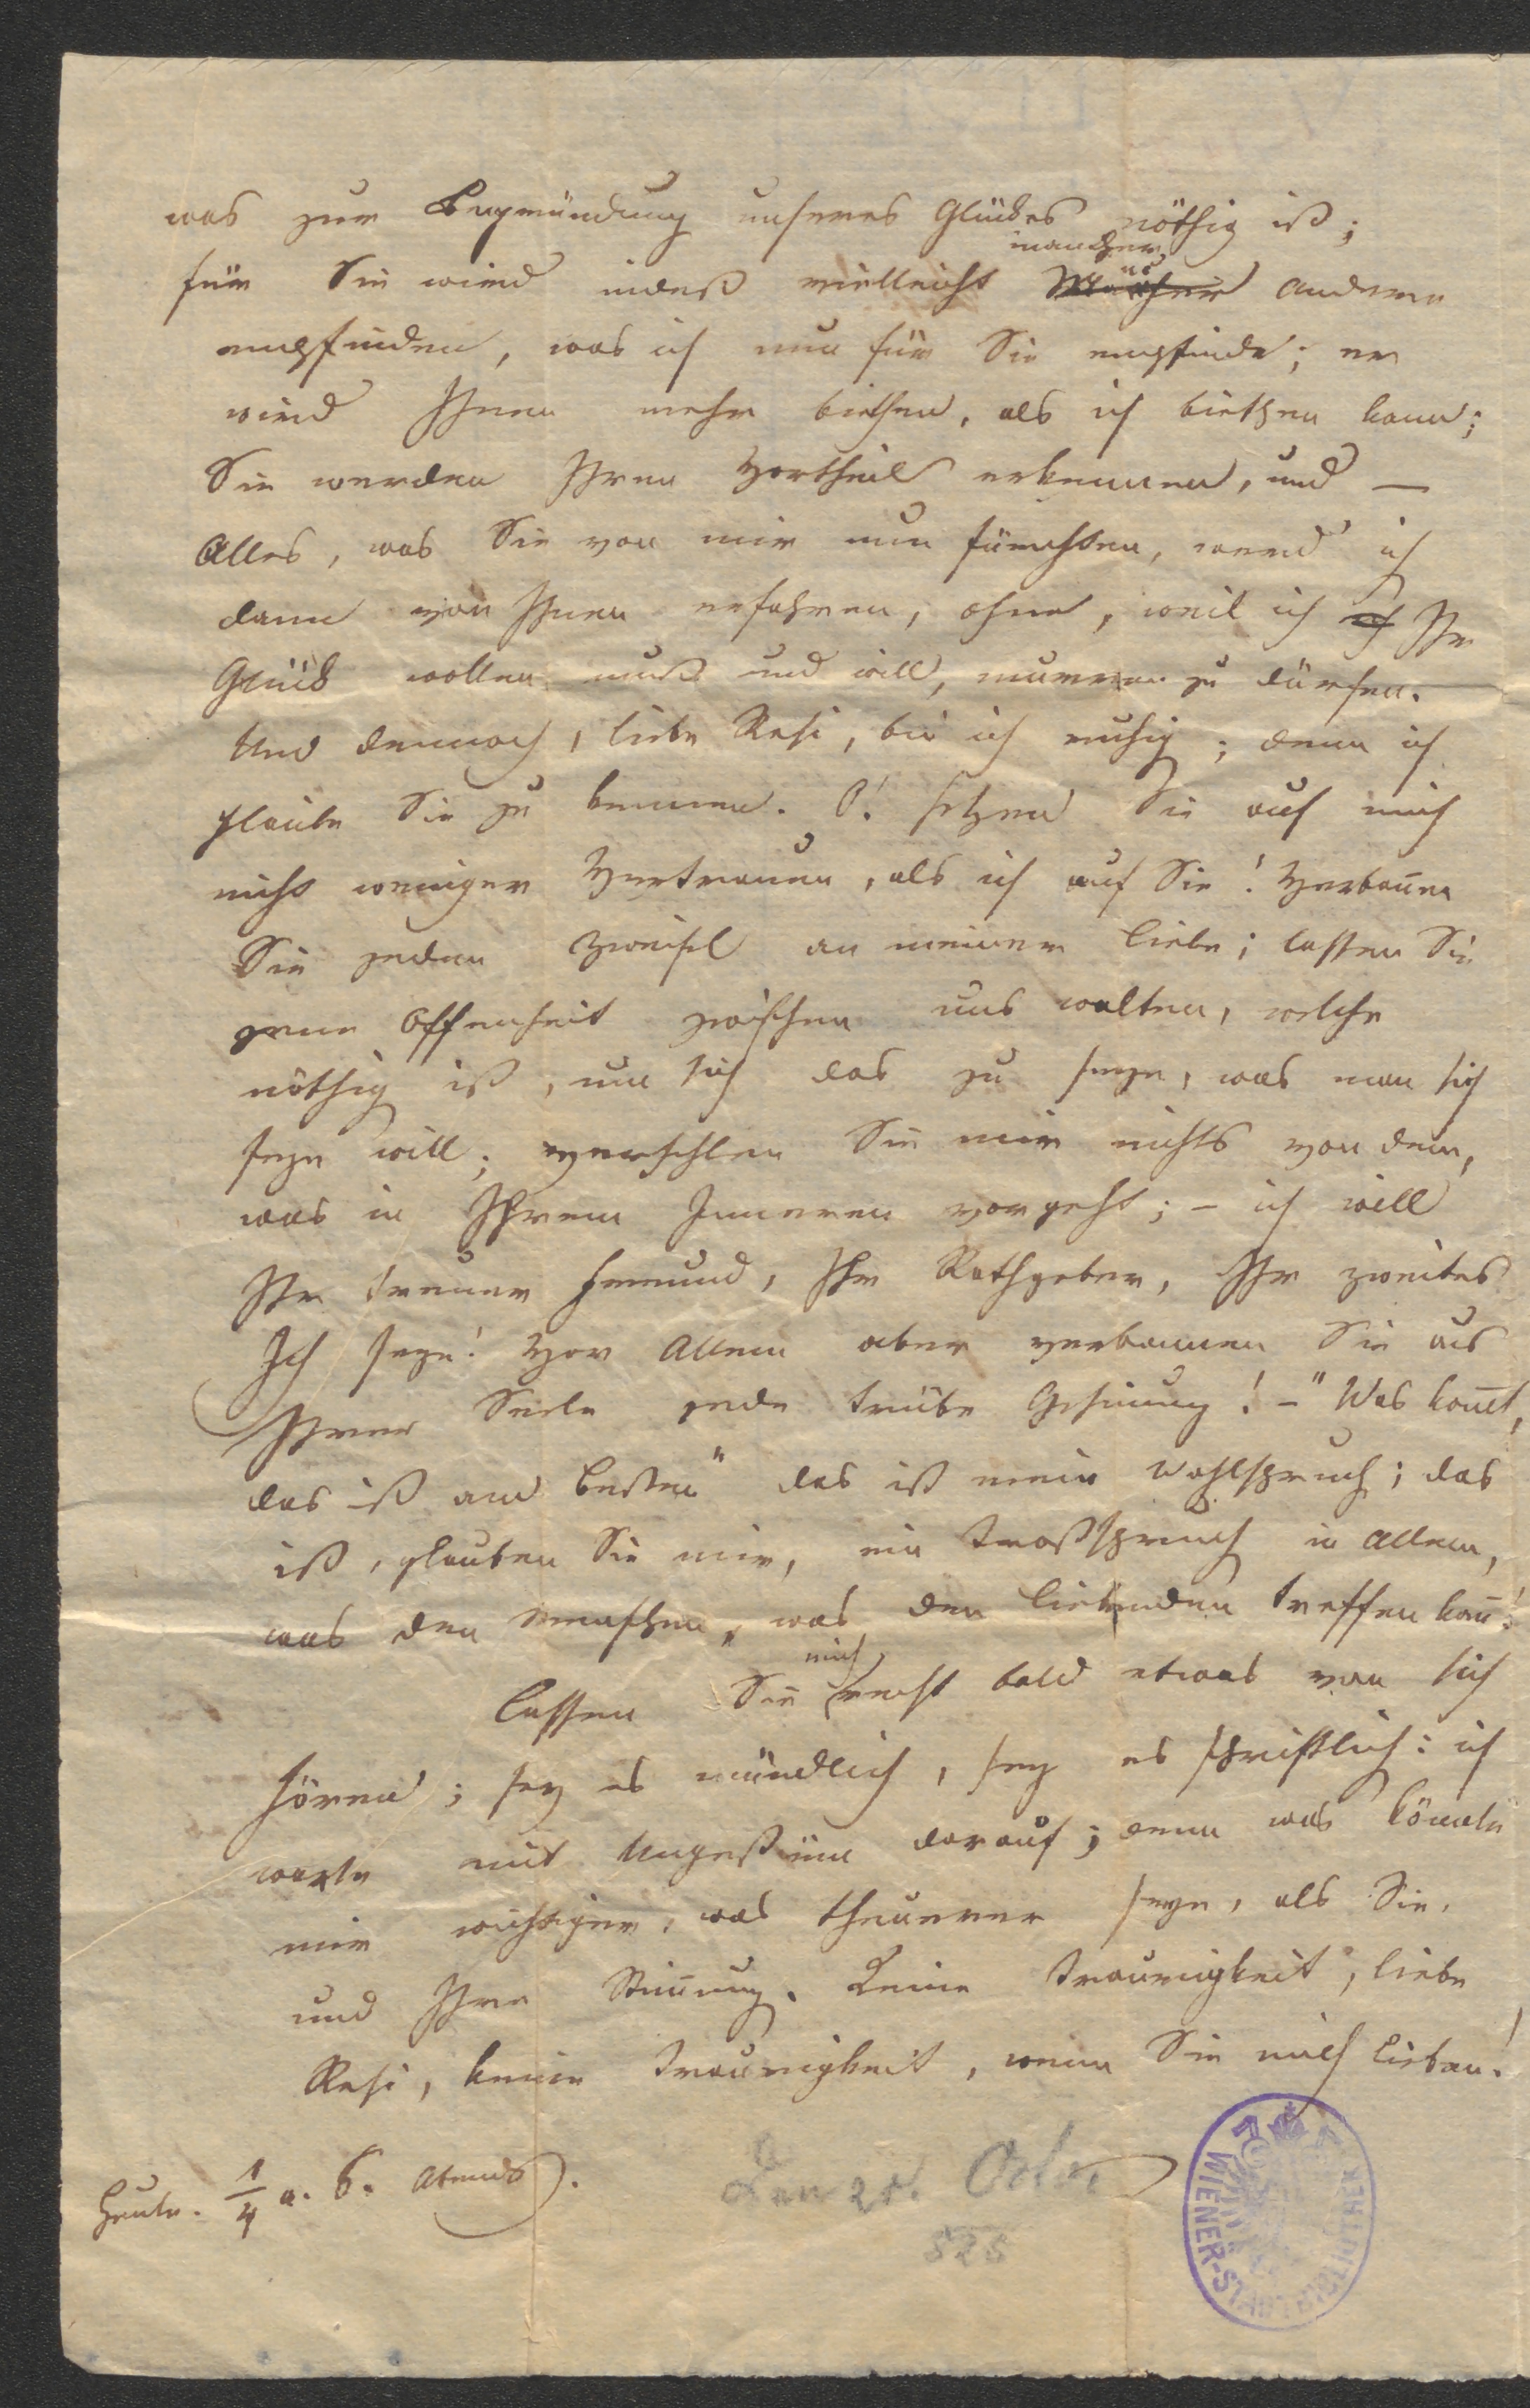 was zur Begründung unseres Glückes nöthig ist;
für Sie wird indeß vielleicht mancher andere
empfinden, was ich nun für Sie empfinde; er
wird Ihnen mehr biethen, als ich biethen kann;
Sie werden Ihren Vortheil erkennen, und —
Alles, was Sie von mir nun fürchten, werd' ich
dann von Ihnen erfahren, ohne, weil ich ich Ihr
Glück wollen muß und will, murren zu dürfen.
Und dennoch, liebe Resi, bin ich ruhig; denn ich
glaube Sie zu kennen. O! setzen Sie auf mich
nicht weniger Vertrauen, als ich auf Sie! Verbannen
Sie jeden Zweifel an meiner Liebe; lassen Sie
jene Offenheit zwischen uns walten, welche
nöthig ist, um sich das zu seyn, was man sich
seyn will; verhehlen Sie mir nichts von dem,
was in Ihrem Inneren vorgeht; – ich will
Ihr treuer Freund, Ihr Rathgeber, Ihr zweites
Ich seyn! Vor Allem aber verbannen Sie aus
Ihrer Seele jede trübe Gesinnung! – "Was kom̄t,
das ist am Besten" das ist mein Wahlspruch; das
ist, glauben Sie mir, ein Trostspruch in Allem,
was den Menschen, was den Liebenden treffen kan̄!
Lassen Sie mich recht bald etwas von sich
hören; sey es mündlich, sey es schriftlich: ich
warte mit Ungestüm darauf; denn was könnte
mir wichtiger, was theuerer seyn, als Sie,
und Ihre Stim̄ung. Keine Traurigkeit, liebe
Resi, keine Traurigkeit, wenn Sie mich lieben!
Heute. 1/4 a. 6. Abends.
Den 21. Octr
825
WIENER-STADTBIBLIOTHEK